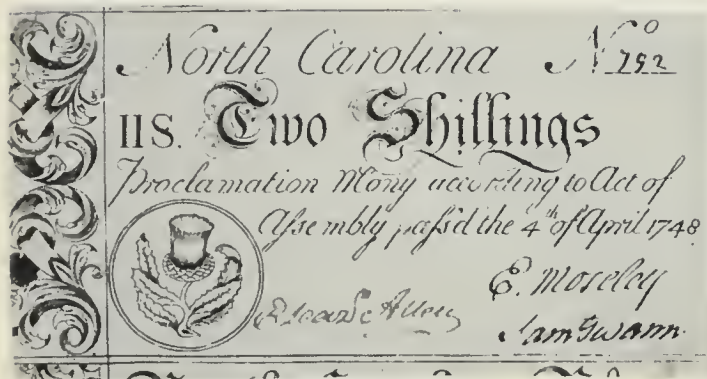 North Carolina No 792
IIS. Two Shillings
Proclamation Mony according to Act of
Assembly passd the 4th of April 1748
E. Moseley
Sam Swann